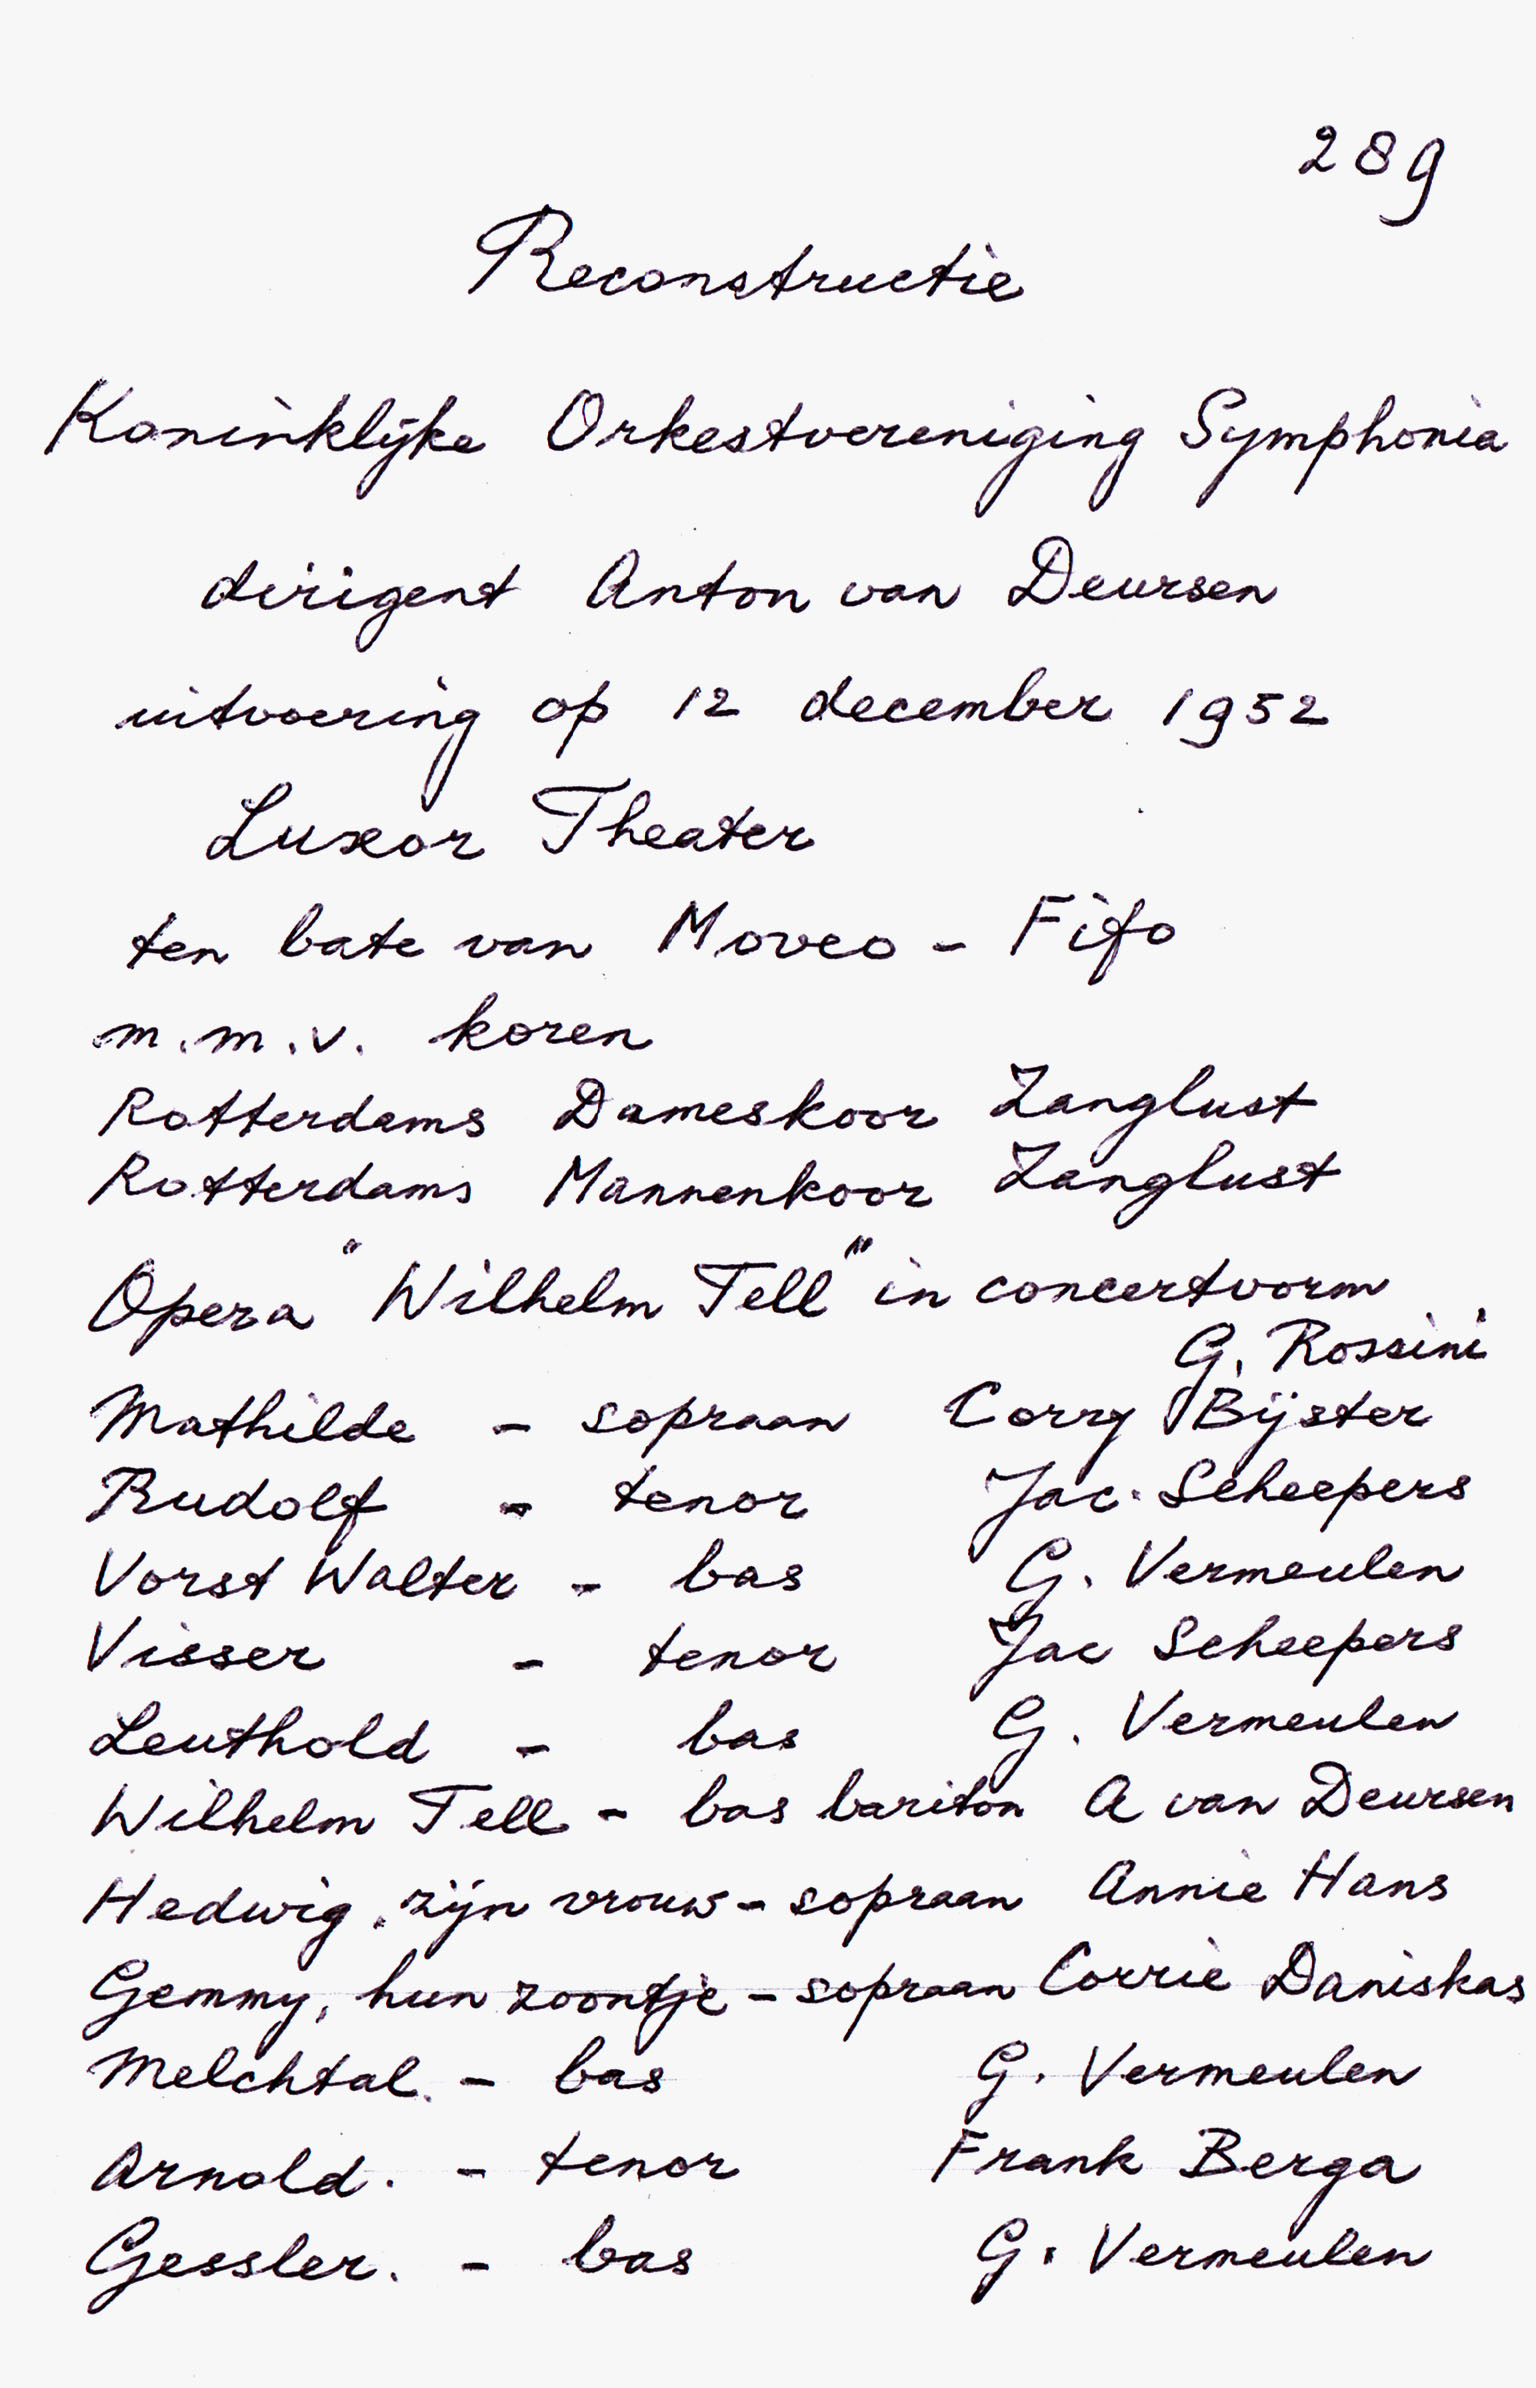 289
Reconstructie
Koninklijke Orkestvereniging Symphonia
dirigent Anton van Deursen
uitvoering op 12 december 1952
Luxor Theater
ten bate van Moveo - Fifo
m.m.v. koren
Rotterdams Dameskoor Zanglust
Rotterdams Mannenkoor Zanglust
Opera "Wilhelm Tell" in concertvorm
G. Rossini
Mathilde - sopraan Corry Bijster
Rudolf - tenor Jac. Scheepers
Vorst Walter - bas G. Vermeulen
Visser - tenor Jac Scheepers
Leuthold - bas G. Vermeulen
Wilhelm Tell - bas bariton A van Deursen
Hedwig, zijn vrouw - sopraan Annie Hans
Gemmy, hun zoontje - sopraan Corrie Daniskas
Melchtal. - bas G. Vermeulen
Arnold. - tenor Frank Berga
Gessler. - bas G. Vermeulen